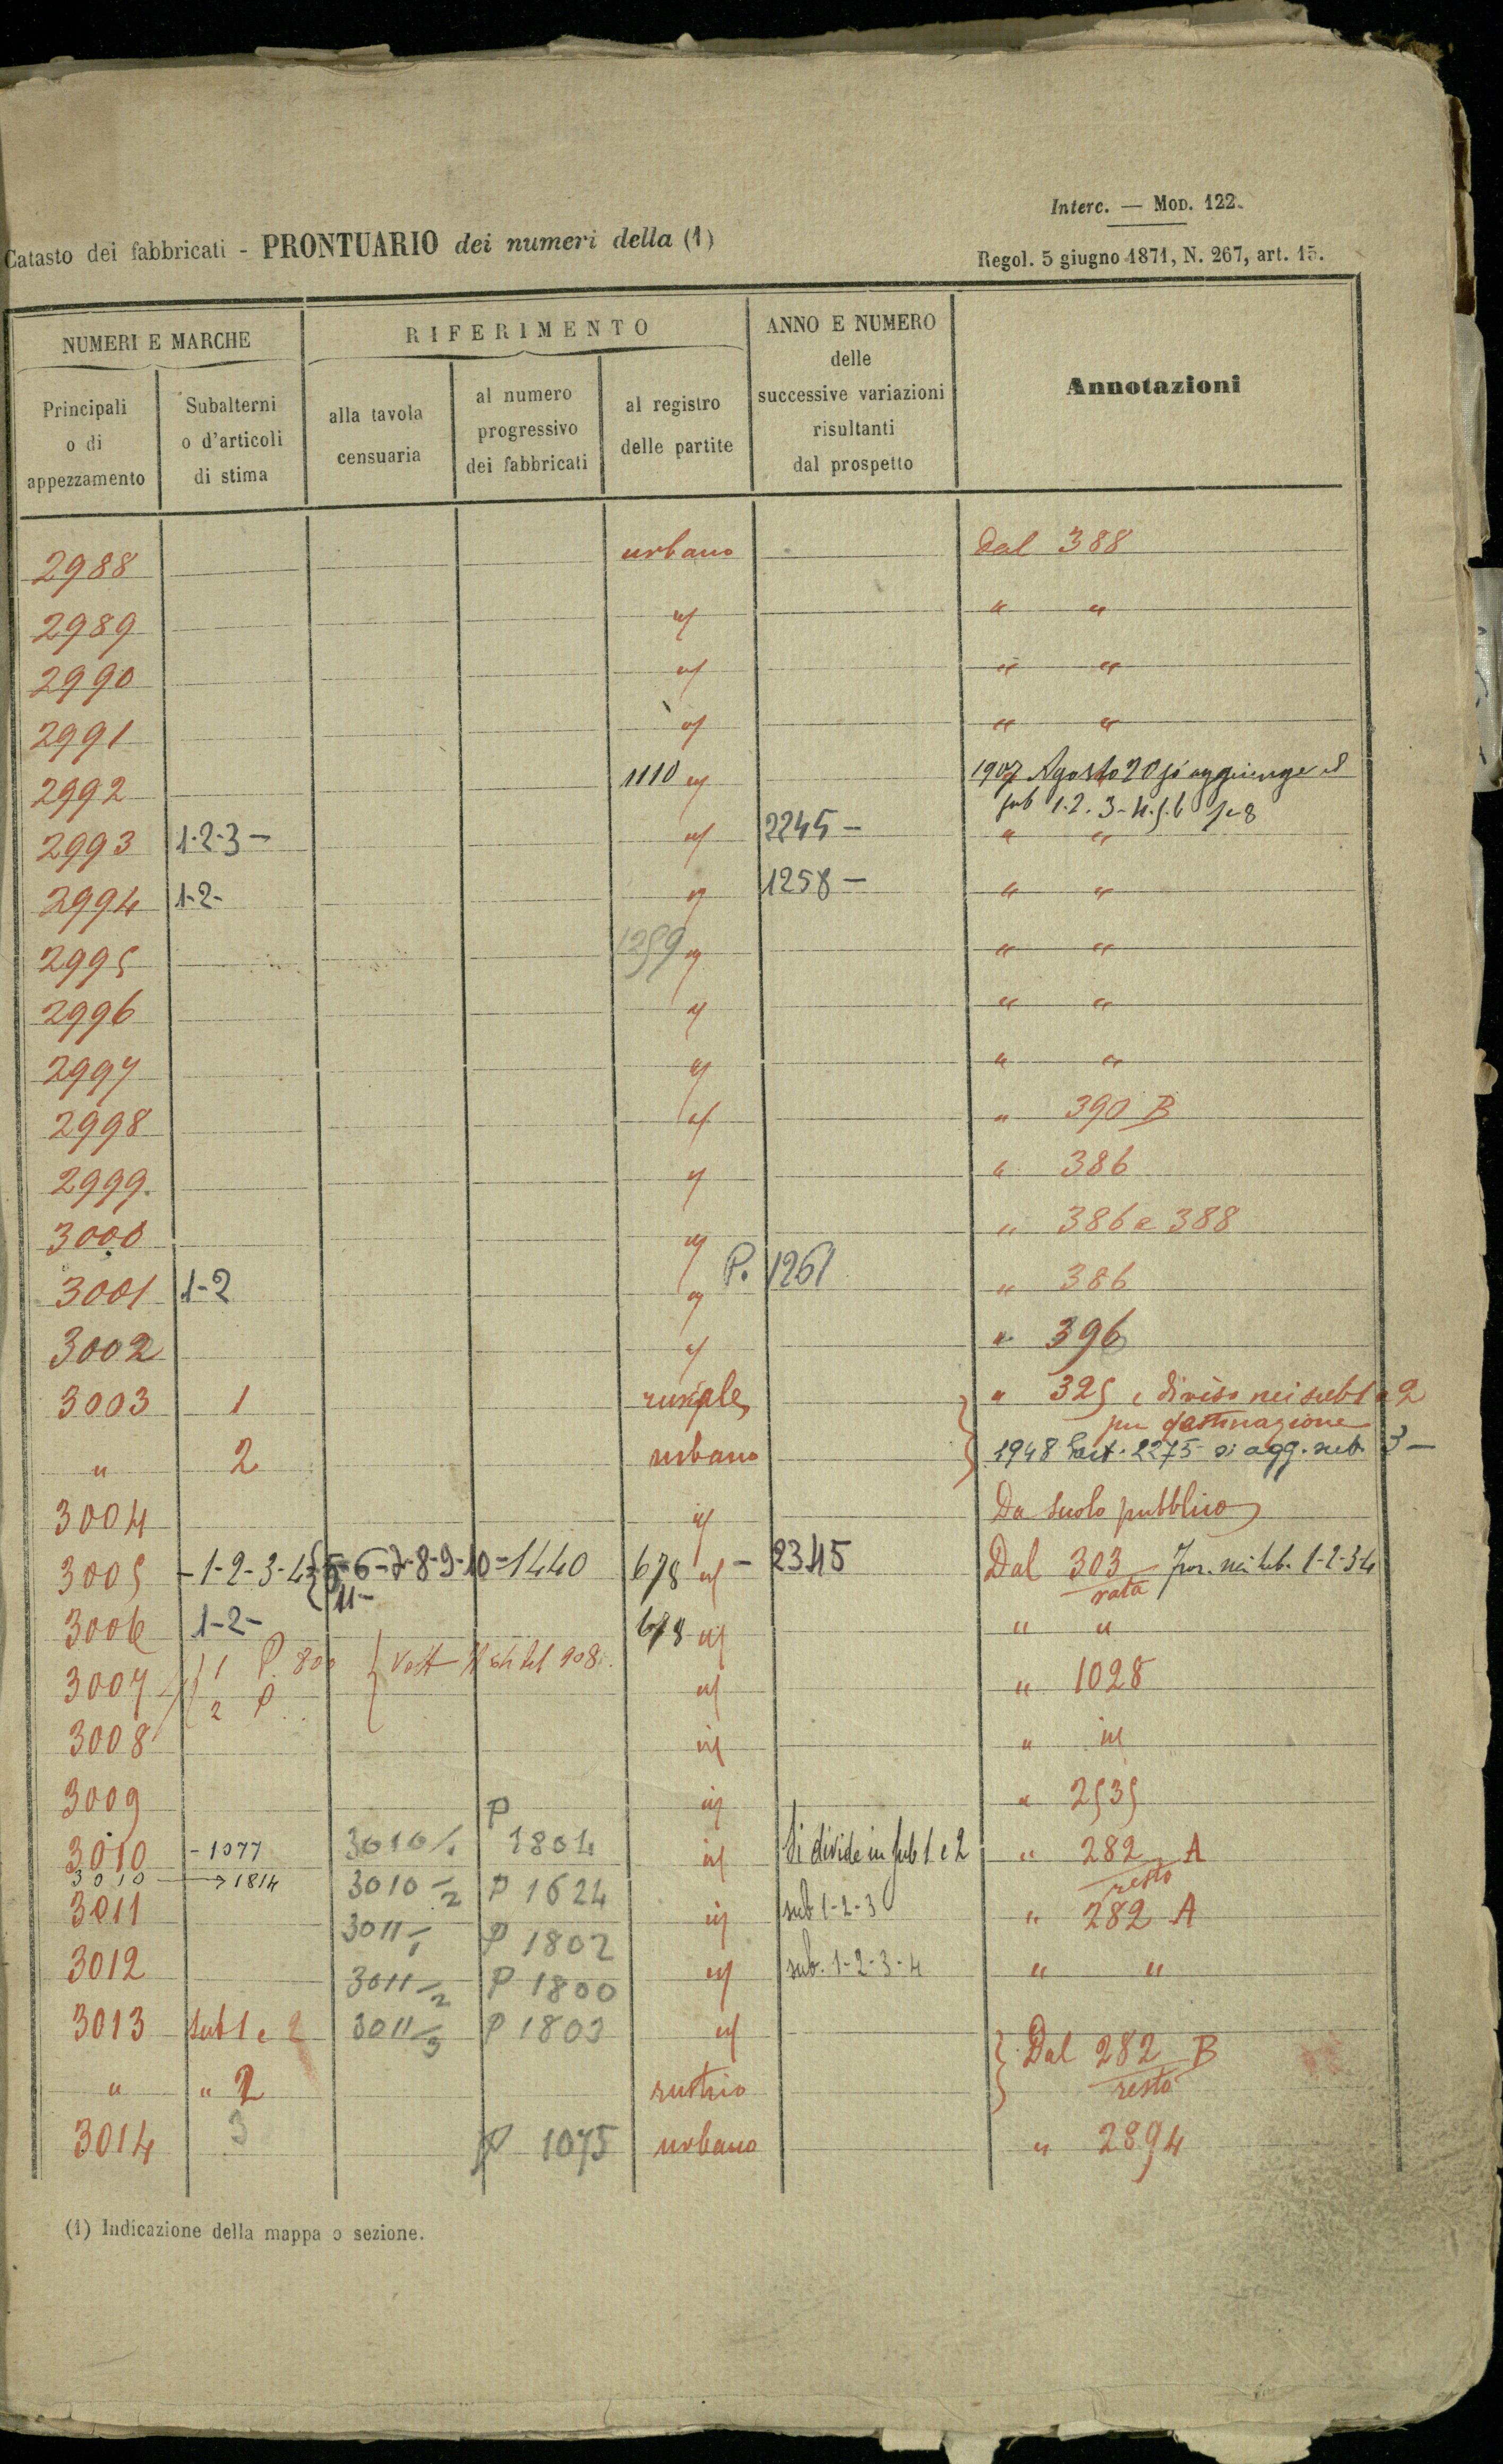 Interc. — Mod. 122.
Catasto dei fabbricati - PRONTUARIO dei numeri della (1)
Regol. 5 giugno 1871, N. 267, art. 15.
NUMERI E MARCHE
RIFERIMENTO
ANNO E NUMERO
delle
successive variazioni
risultanti
dal prospetto
Annotazioni
Principali
o di
appezzamento
Subalterni
o d'articoli
di stima
alla tavola
censuaria
al numero
progressivo
dei fabbricati
al registro
delle partite
2988 urbano Dal 388
2989 " " "
2990 " " "
2991 " " "
2992 1110 " 1907 Agosto 20 si aggiunge il
sub 1.2.3-4.5.6 7e8
2993 1-2-3- " 2245- " "
2994 1-2- " 1258- " "
2995 1259 " " "
2996 " " "
2997 " " "
2998 " " 390 B
2999 " " 386
3000 " " 386 e 388
3001 1-2 " P. 1261 " 386
3002 " " 396
3003 1 rurale " 325 e diviso nei sub 1 e 2
per destinazione
" 2 urbano 1948 2275 si agg. sub. 3-
3004 " Da suolo pubblico
3005 -1-2-3-4-5-6-7-8-9-10-1440 678 " - 2345 Dal 303 nei sub. 1-2-3-4
11- rata
3006 1-2- 678 " " "
3007 1 P. 800 " " 1028
2 P.
3008 " " "
3009 " " 2535
3010 -1077 3010/1 P 1804 " Si divide in sub 1 e 2 " 282 A
resto
3010 → 1814 3010/2 P 1624
3011 3011/1 P 1802 " sub 1-2-3 " 282 A
3012 3011/2 P 1800 " sub. 1-2-3-4 " "
3013 sub 1 e 2 3011/3 P 1803 " Dal 282 B
resto
" " 2 rustico
3014 3 P 1075 urbano " 2894
(1) Indicazione della mappa o sezione.